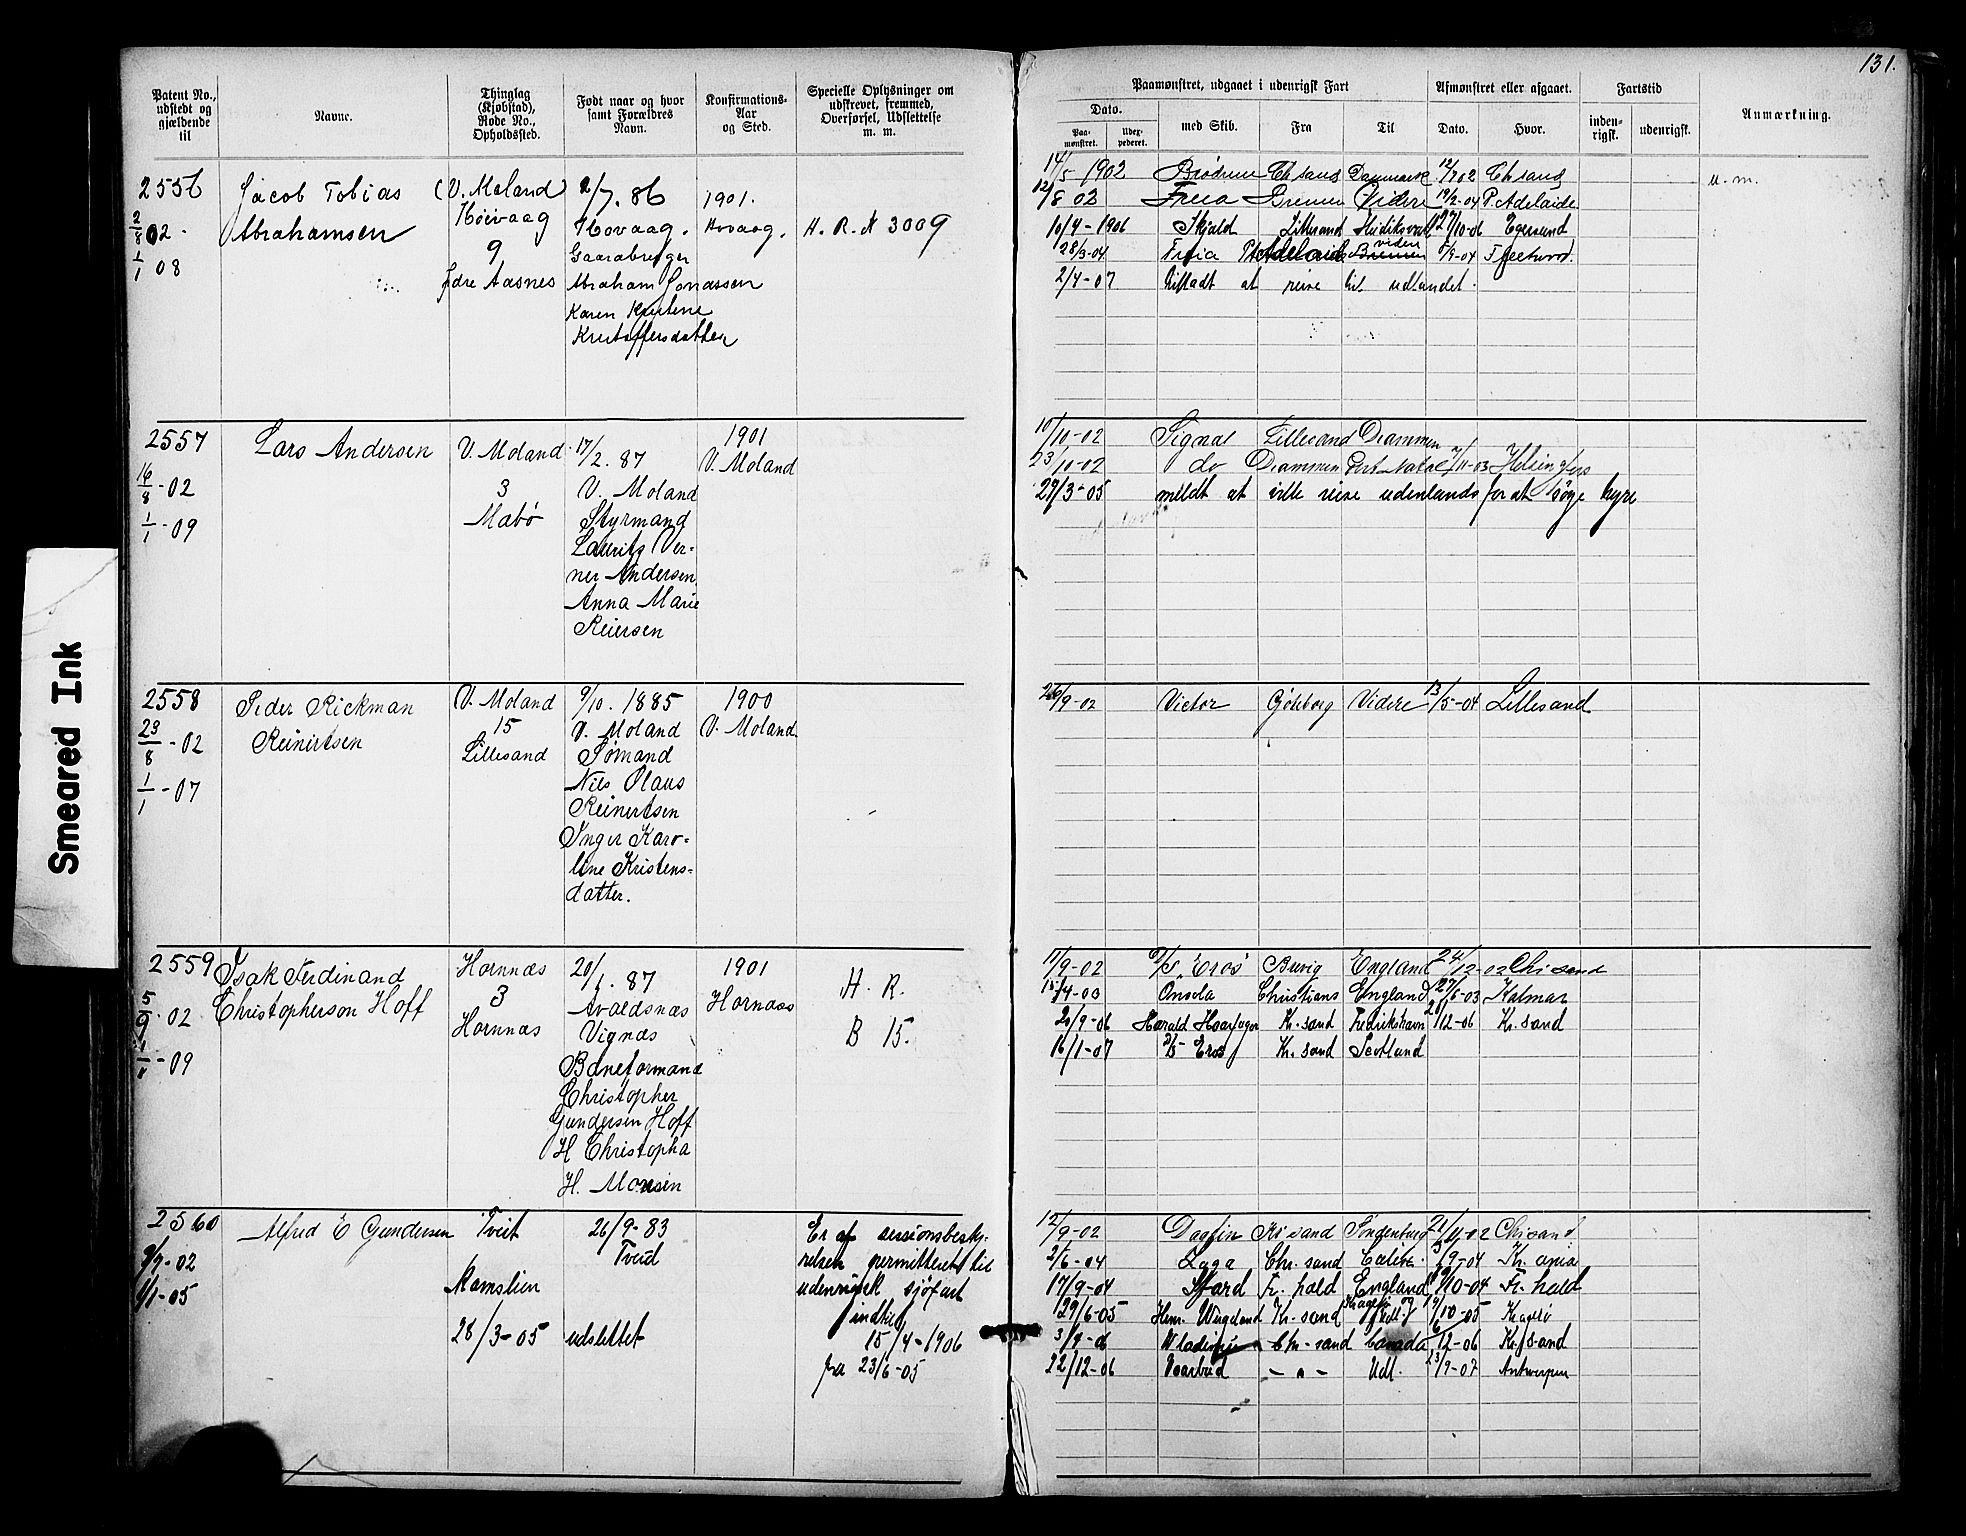 131.
Patent No., udstedt og gjældende til
Navne.
Thinglag (Kjøbstad), Rode No., Opholdssted.
Født naar og hvor samt Forældres Navn.
Konfirmations-Aar og Sted.
Specielle Oplysninger om udskrevet, fremmed, Overførsel, Udslettelse m. m.
Paamønstret, udgaaet i udenrigsk Fart
Dato.
Paa-mønstret.
Udex-pederet.
med Skib.
Fra
Til
Afmønstret eller afgaaet.
Dato.
Hvor.
Fartstid
inden-rigsk.
udenrigsk.
Anmærkning.
2556 Jacob Tobias (V. Moland) 2/7. 86 1901.
2/8 02. Abrahamsen Høivaag Hovaag. Hovaag. H. R. N 3009
1/1 08 9
Ydre Aasnes Abraham Jonassen
Karen Kristene
Kristoffersdatter
14/5 1902 Brødrene Chsand Danmark 12/7 02 Chsand u. m.
12/8 02 Freia Bremen Videre 19/2-04 P. Adelaide
10/9-1906 Skjald Lillesand 27/10-06 Egersund
28/3-04 Freia Pt Adelaide Bremen viden 5/9-04 Fleetwood.
2/4-07 tilladt at reise til udlandet.
2557 Lars Andersen V. Moland 17/2. 87 1901
16/8-02 3 V. Moland V. Moland
1/1-09 Mabø Styrmand
Lauritz Ver-
ner Andersen
Anna Marie
Reiersen
10/10-02 Signal Lillesand Drammen
23/10-02 do Drammen Port Natal 7/11-03 Helsingfors
29/3-05 meldt at ville reise udenlands for at søge hyre
2558 Peder Rickman V. Moland 9/10. 1885 1900
23/8-02 Reinertsen 15 V. Moland V. Moland
1/1-07 Lillesand Sømand
Nils Olaus
Reinertsen
Inger Karo-
line Kristens-
datter.
26/9-02 Victor Göteborg Videre 13/5-04 Lillesand
2559 Isak Ferdinand Hornnæs 20/1. 87 1901 H. R.
5/9-02 Christopherson Hoff 3 Avaldsnæs Hornnæs B 15.
1/1-09 Hornnæs Vignæs
Baneformand
Christopher
Gundersen Hoff
H Christopha
H. Monsen
17/9-02 D/S "Eros" Brevig England 24/12-02 Chrisand
15/4-03 Onsola Christians England 27/6-03 Kalmar
20/9-06 Harald Haarfager Kr. sand Fredrikshavn 2/12-06 Kr. sand
16/1-07 D/S Eros Kr. sand Scotland
2560 Alfred E Gundersen Tveit 26/9-83
9/9-02 Ramslien Tveid
1/1-05 28/3-05 udslettet
Er af sessionsbesty-
relsen permitteret til
udenrigsk sjøfart
indtil
15/4-1906
fra 23/6-05
12/9-02 Dagfin Kr sand Sonderburg 21/11-02 Chrisand
2/6-04 Saga Chr. sand 3/9-04 Kr. ania
17/9-04 Fr. hald England 10-04 Fr. hald
29/6-05 Henr. Wergeland Kr. sand Kragerø og 19/10-05 Kragerø
3/9-06 Wladimir Chr-sand Canada 6/12-06 Kr. sand
22/12-06 Vaarbud - " - Udl. 23/9-07 Antwerpen
Smeared Ink